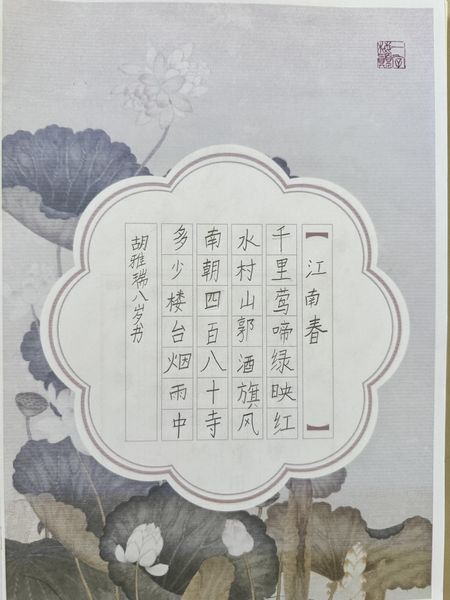 【江南春】
千里莺啼绿映红
水村山郭酒旗风
南朝四百八十寺
多少楼台烟雨中
胡雅瑞八岁书